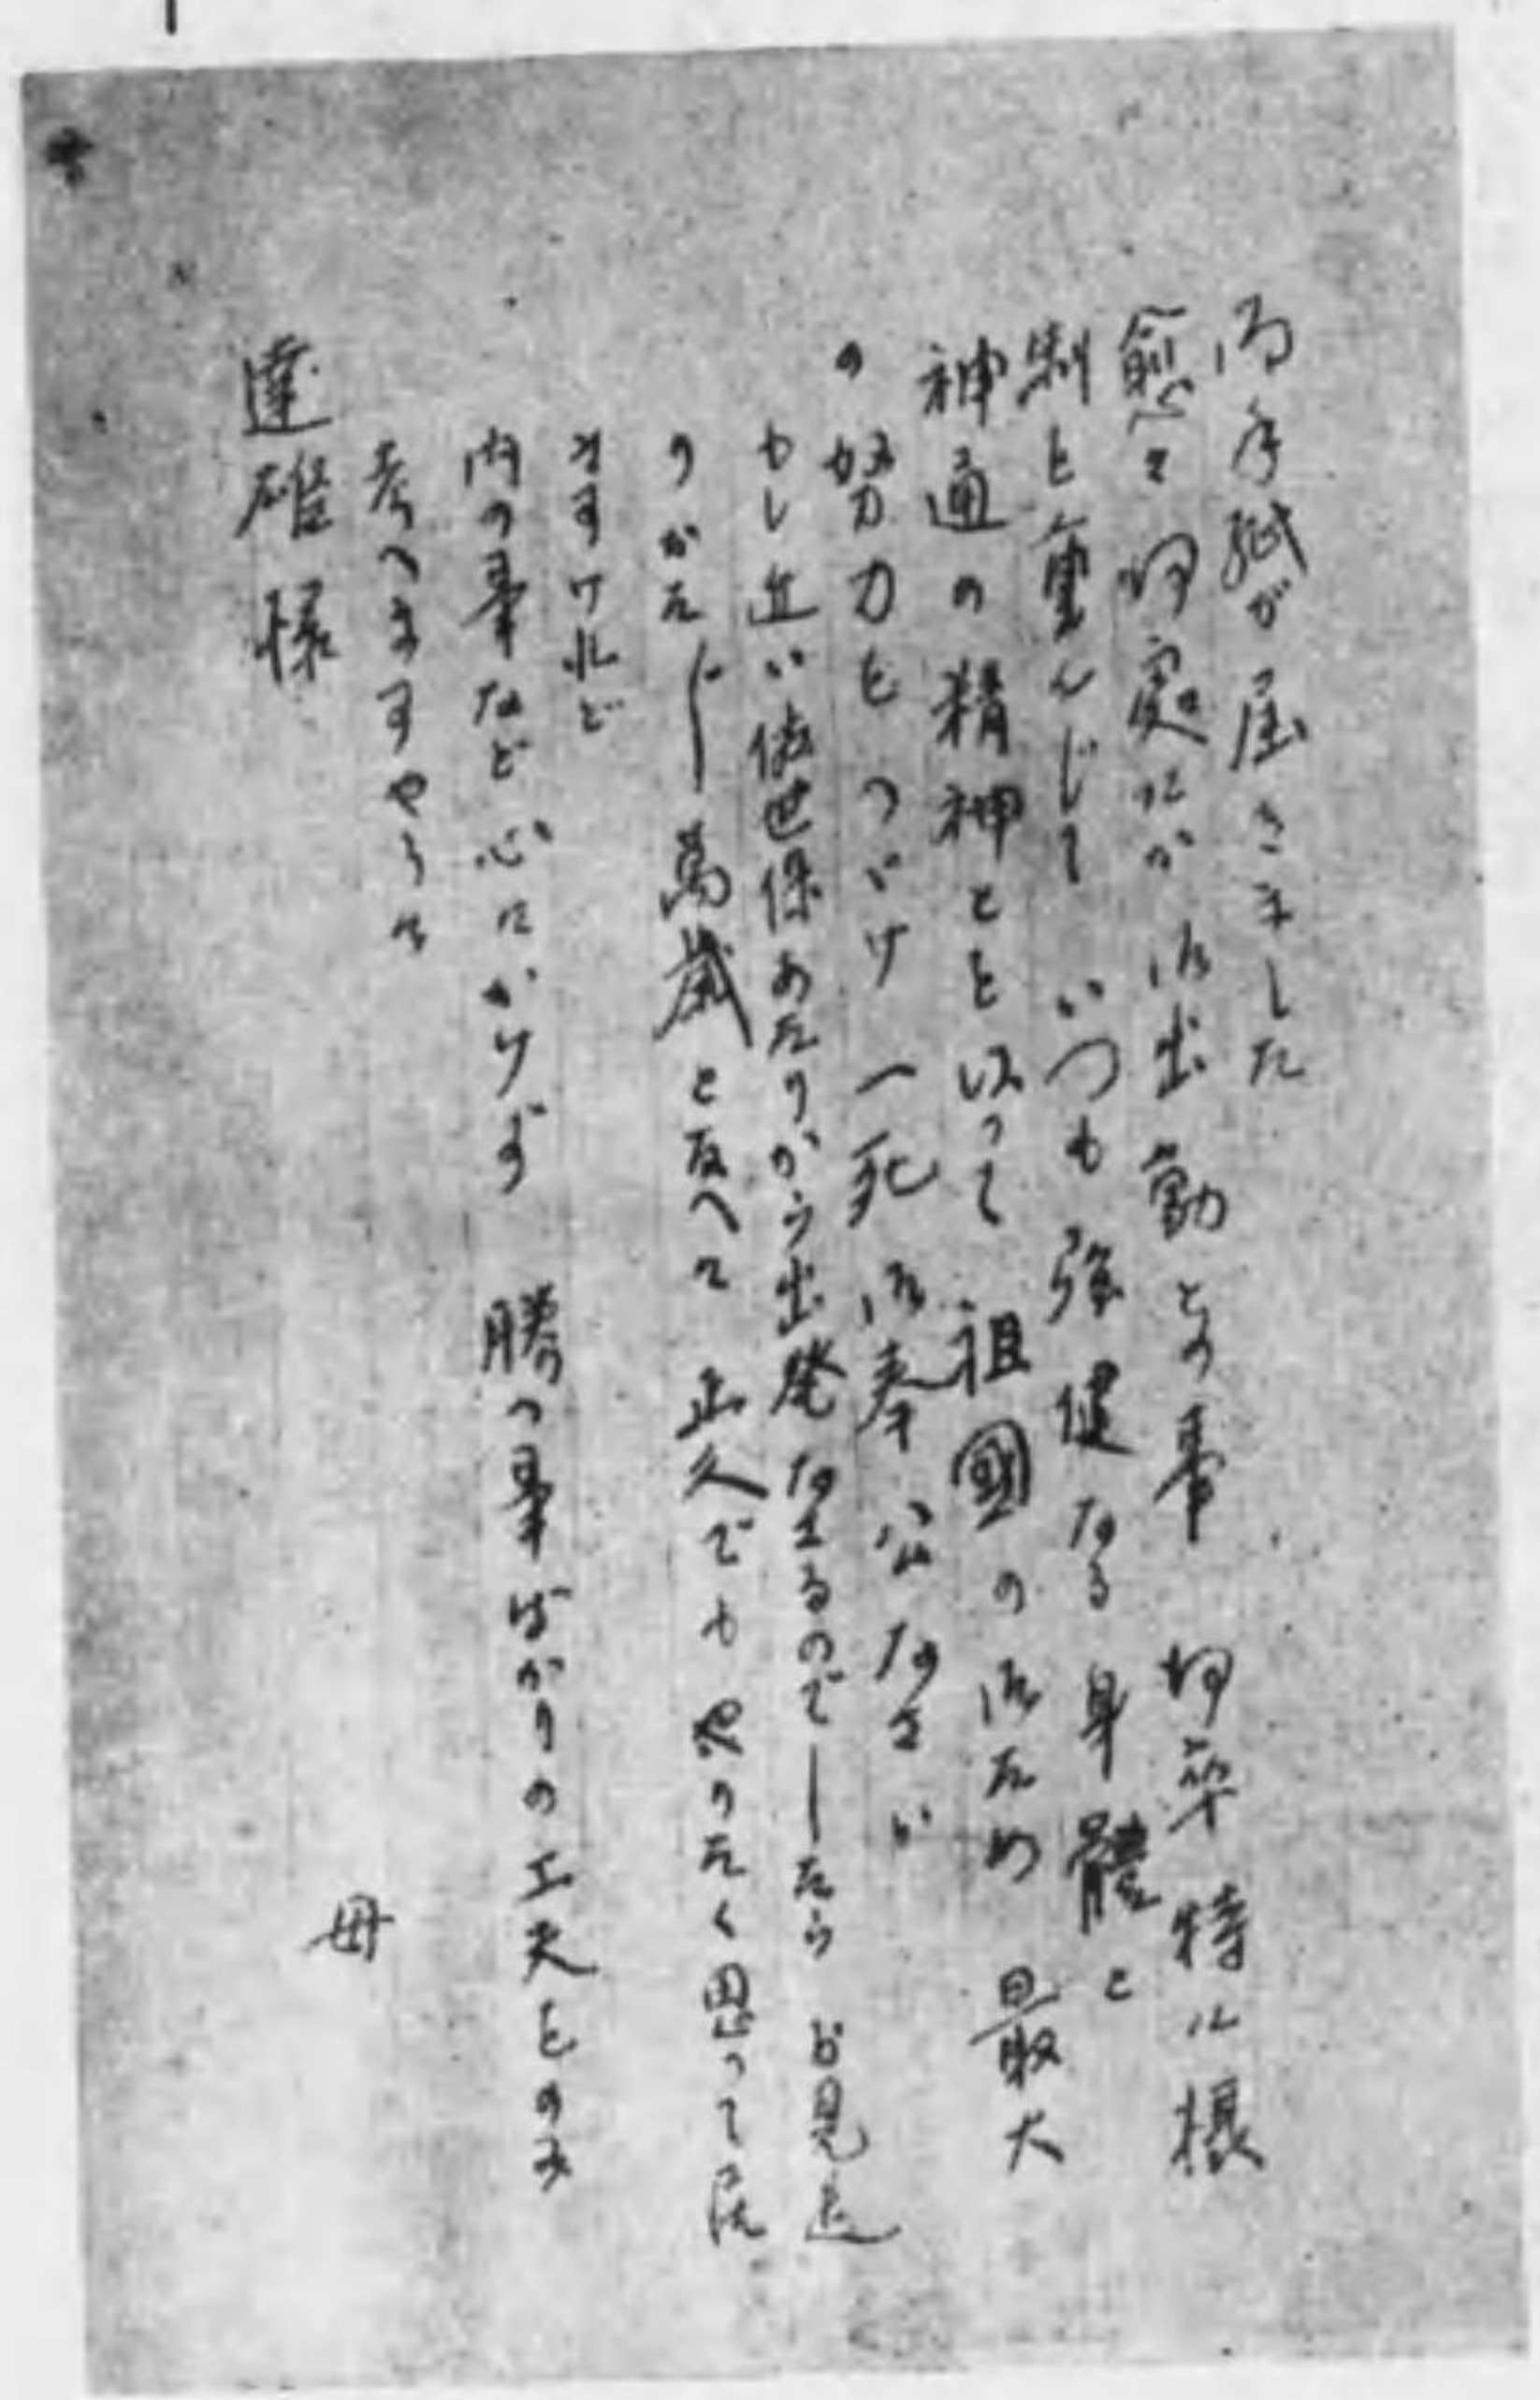 御手紙が届きました
愈々何處にか御出動との事 何卒特に摂
制を重んじて いつも強健なる身體と
神通の精神とを以って 祖國の御ため 最大
の努力をつゞけ 一死御奉公なさい
もし近い佐世保あたりから出発なさるのでしたら お見送
りかた〴〵萬歳となへに 正久でもやりたく思って居
ますけれど
内の事など心にかけず 勝つ事ばかりの工夫をのみ
考へますやうに
母
達雄様